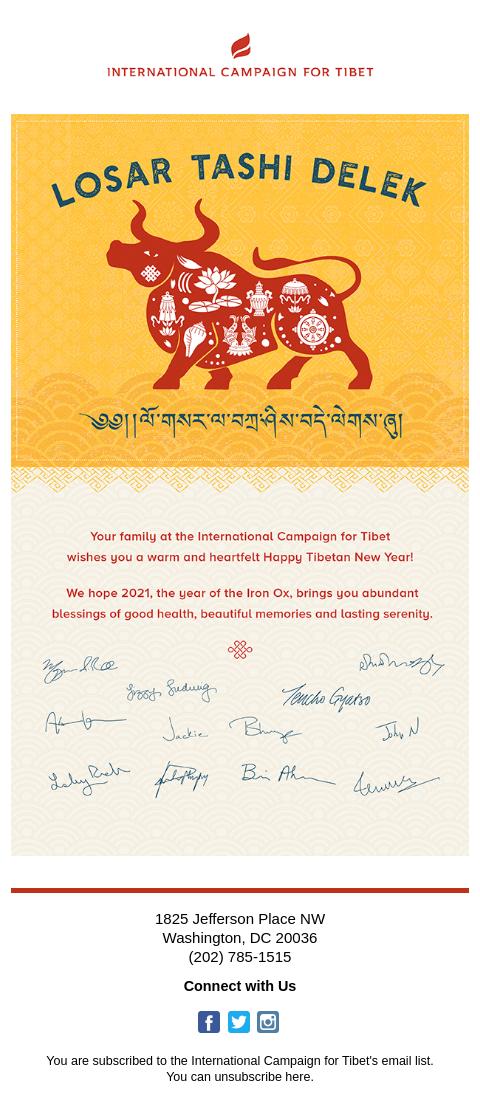 INTERNATIONAL CAMPAIGN FOR TIBET
LOSAR TASHI DELEK
༄༅།།ལོ་གསར་ལ་བཀྲ་ཤིས་བདེ་ལེགས་ཞུ།
Your family at the International Campaign for Tibet
wishes you a warm and heartfelt Happy Tibetan New Year!
We hope 2021, the year of the Iron Ox, brings you abundant
blessings of good health, beautiful memories and lasting serenity.
Tencho Gyatso
Jackie
John N
1825 Jefferson Place NW
Washington, DC 20036
(202) 785-1515
Connect with Us
You are subscribed to the International Campaign for Tibet's email list.
You can unsubscribe here.